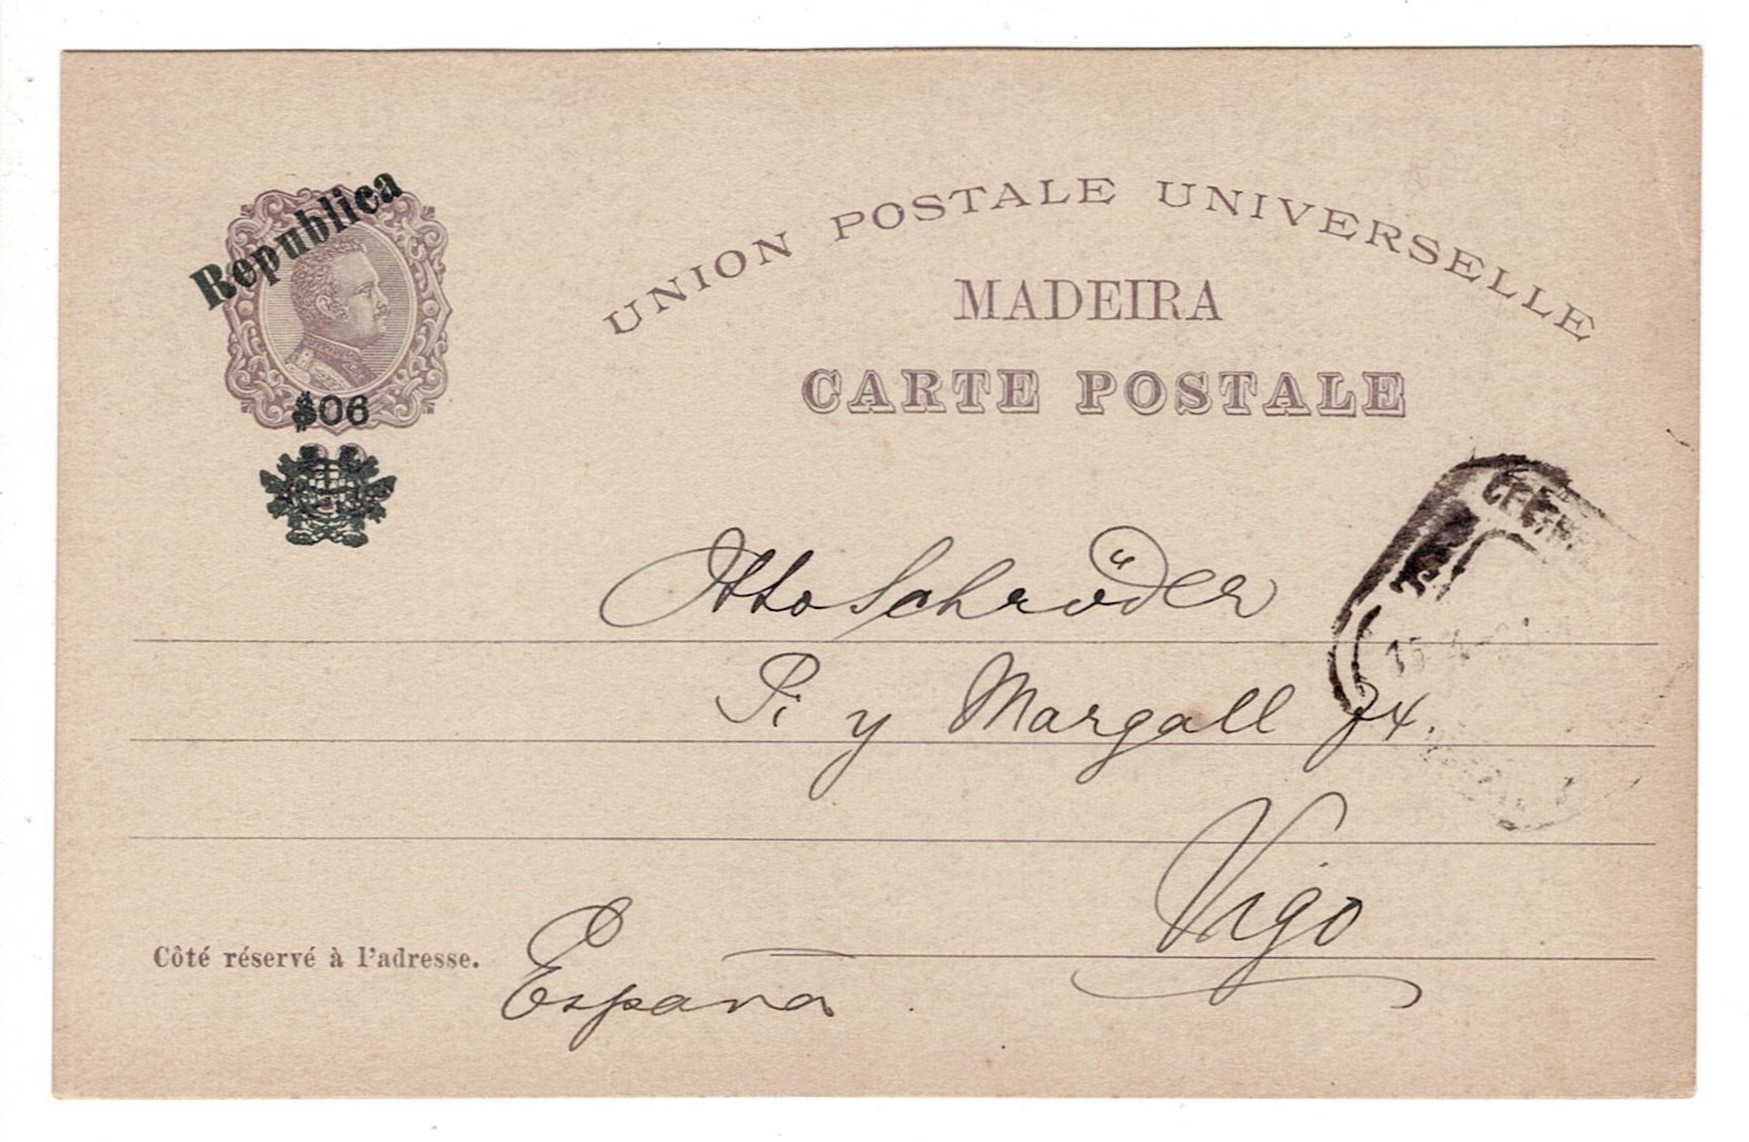 Republica
$06
UNION POSTALE UNIVERSELLE
MADEIRA
CARTE POSTALE
Otto Schröder
Pi y Margall 74.
Vigo
Côté réservé à l'adresse.
España